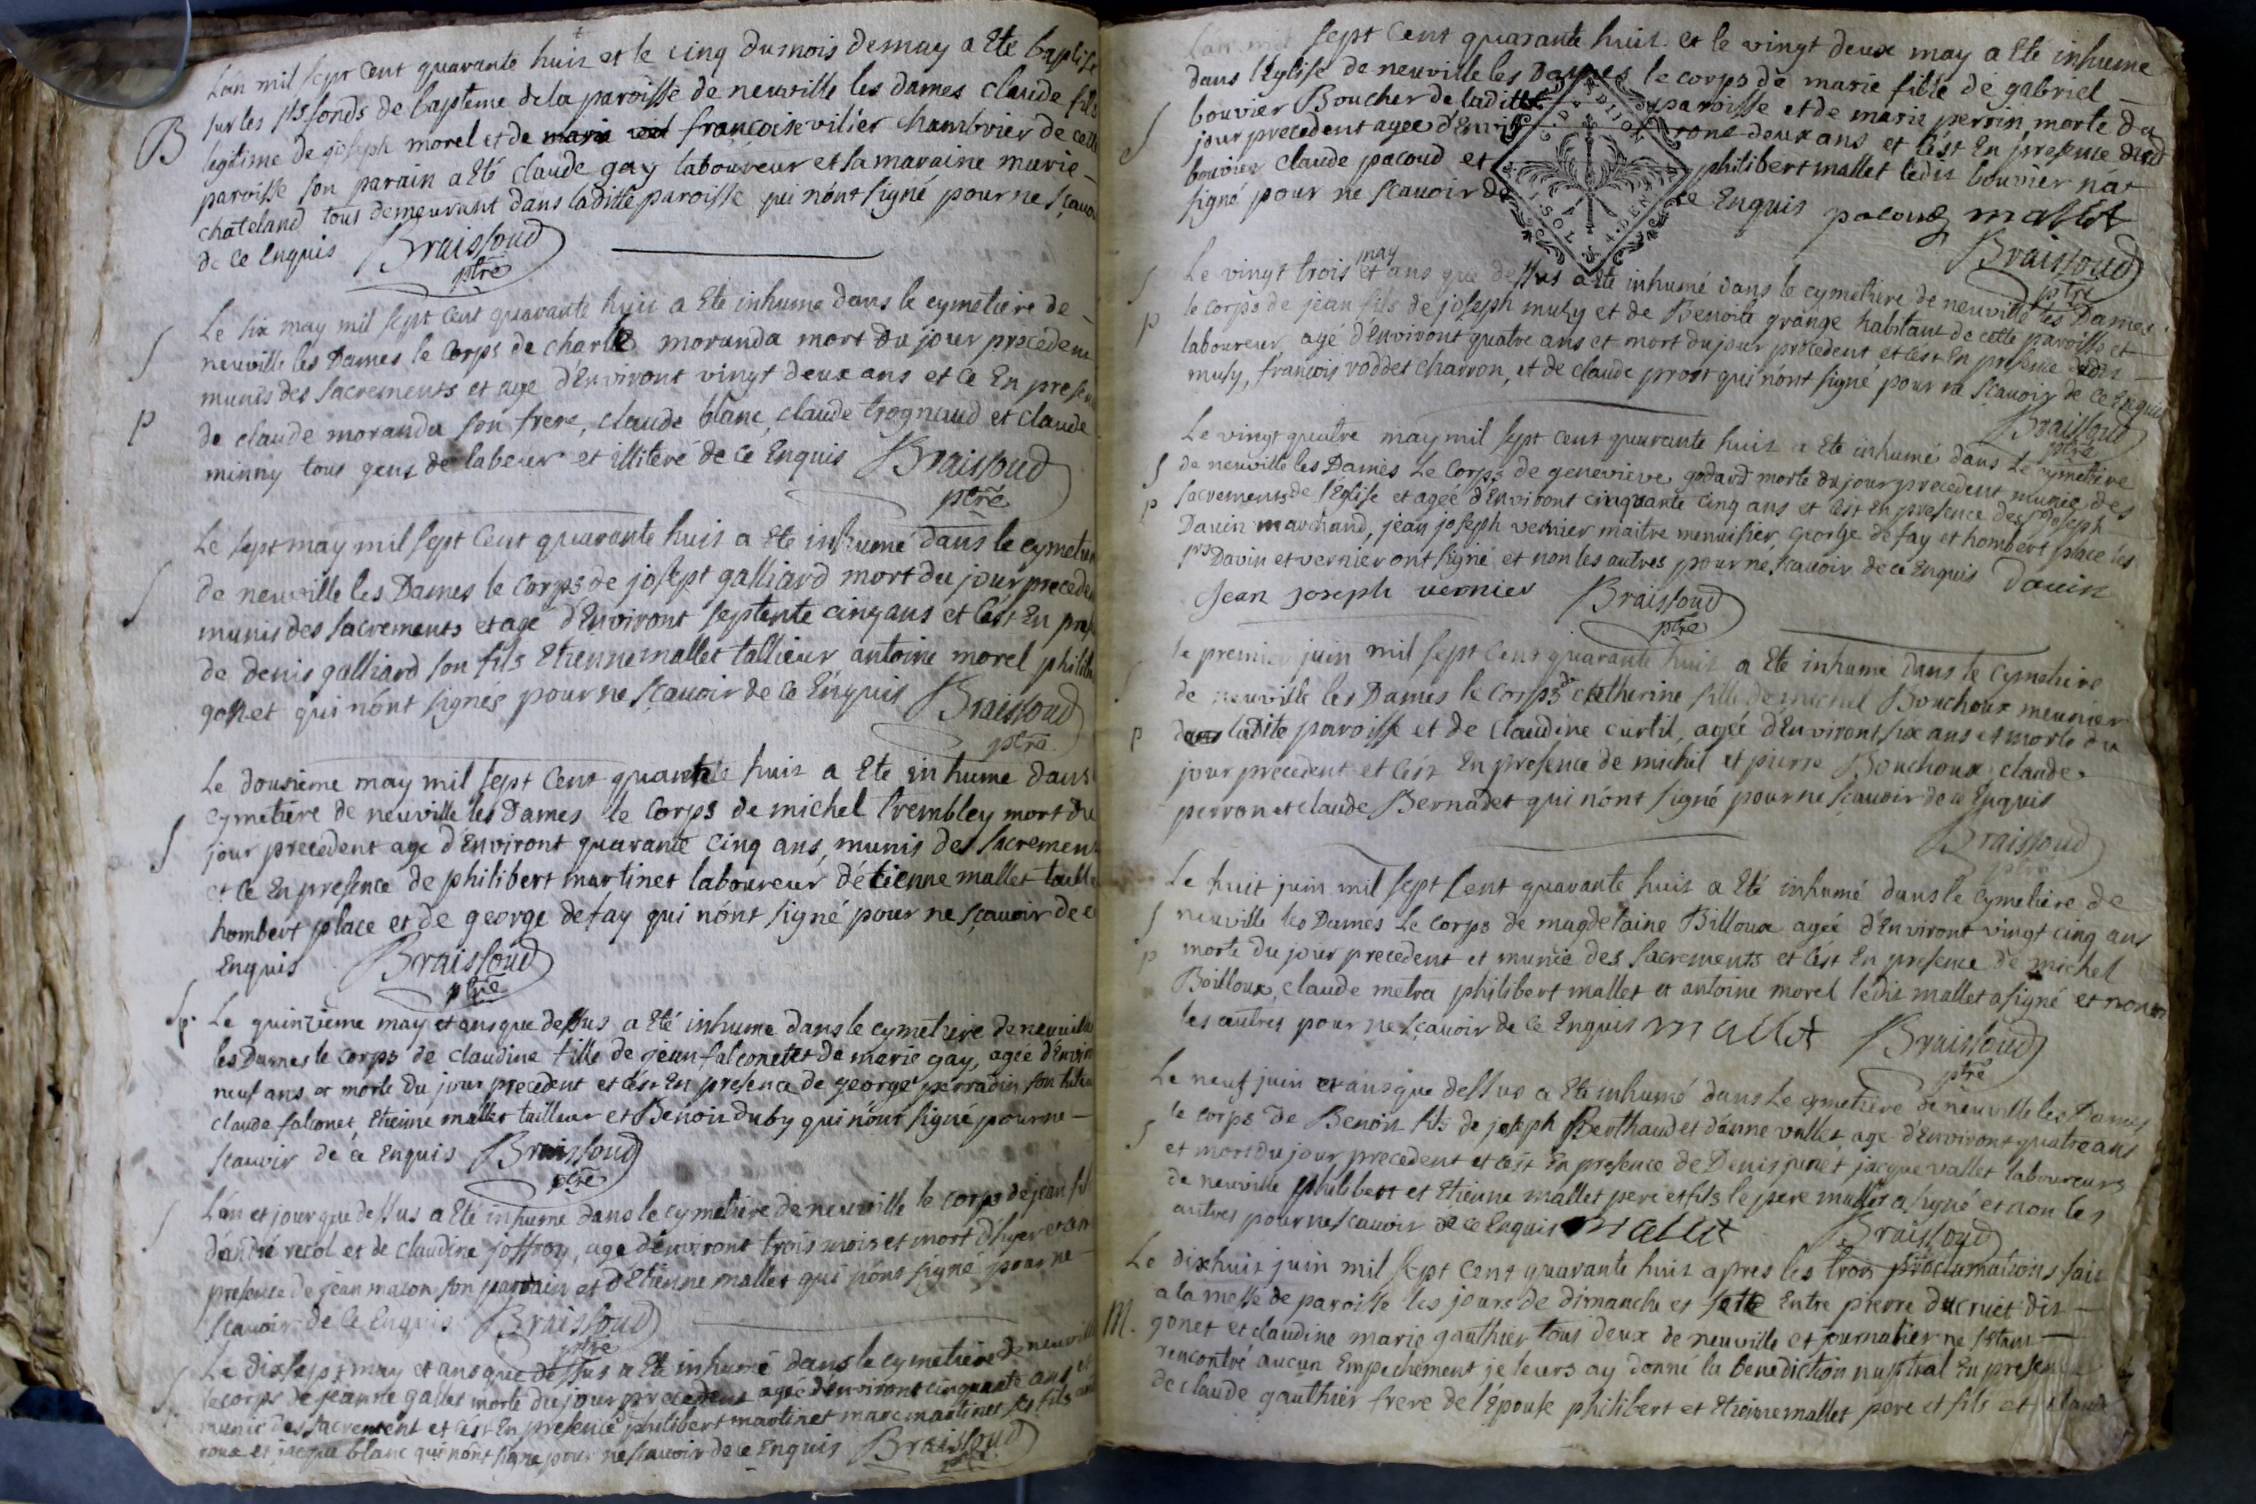 L'an mil sept cent quarante huit et le cinq du mois de may a Eté baptisé
sur les sts fonds de baptême de la paroisse de neuville les dames claude fils
B
legitime de joseph morel et de françoise vilier chambrier de cette
paroisse son parain a Eté claude gay laboureur et sa maraine marie
chateland tous demeurant dans laditte paroisse qui n'ont signé pour ne sçavoir
de ce Enquis Braissoud
ptre
Le six may mil sept cent quarante huit a Eté inhumé dans le cymetiere de
S
neuville les Dames le Corps de charle moranda mort du jour precedent
munis des sacrements et agé d'Environt vingt deux ans et ce En presen
P
de claude moranda son frere, claude blanc, claude trognaud et claude
minny tous gens de labeur et illiteré de ce Enquis Braissoud
ptre
Le sept may mil sept cent quarante huit a Eté inhumé dans le cymetiere
S
de neuville les Dames le corps de josept galliard mort du jour precedent
munis des sacrements et agé d'Environt septente cinq ans et c'est En pres
de denis galliard son fils Etienne mallet tallieur antoine morel philib
gonet qui n'ont signés pour ne sçavoir de ce Enquis Braissoud
ptre
Le dousieme may mil sept cent quarante huit a Eté inhumé dans
cymetiere de neuville les Dames le corps de michel trembley mort du
S
jour precedent agé d'Environt quarante cinq ans, munis des sacrements
et ce En presence de philibert martinet laboureur d'étienne mallet taill
hombert place et de george defay qui n'ont signé pour ne sçavoir de ce
Enquis Braissoud
ptre
Sp. Le quinzieme may et ans que dessus a Eté inhumé dans le cymetiere de neuville
les Dames le corps de claudine fille de jean falconet et de marie gay, ageé d'Environ
neuf ans et morte du jour precedent et c'est En presence de george perradin son
claude falconet, Etienne mallet tailleur et Benoit duby qui n'ont signé pour ne
scavoir de ce Enquis Braissoud
ptre
S
L'an et jour que dessus a Eté inhumé dans le cymetiere de neuville le corps de jean fil
d'andré recol et de claudine joffroy, agé d'environt trois mois et mort d'hyer et en
presence de jean maton son parrain et d'Etienne mallet qui n'ont signé pour ne
scavoir de ce Enquis Braissoud
ptre
Le dix sept may et ans que dessus a Eté inhumé dans le cymetiere de neuville
S
le corps de jeanne gallet morte du jour precedent ageé d'environt cinquante ans et
munie des sacrement et c'est En presence philibert martinet marc martinet ses fils
roux et jacque blanc qui n'ont signé pour ne scavoir de ce Enquis Braissoud
ptre
L'an mil sept cent quarante huit et le vingt deux may a Eté inhumé
dans l'Eglise de neuville les Dames le corps de marie fille de gabriel
S
bouvier Boucher de laditte paroisse et de marie perrin morte du
jour precedent ageé d'Environt deux ans et c'est En presence dud
bouvier claude pacoud et philibert mallet ledit bouvier n'at
signé pour ne scavoir de ce Enquis pacoud mallet
G. D. DIJON
I SOL 4. DEN
Braissoud
ptre
may
S
Le vingt trois et ans que dessus a Eté inhumé dans le cymetiere de neuville les Dames
P
le corps de jean fils de joseph musy et de Benoite grange habitant de cette paroisse et
laboureur, agé d'Environt quatre ans et mort du jour precedent et c'est En presence dudit
musy, françois voddet charron, et de claude prost qui n'ont signé pour ne scavoir de ce Enquis
Braissoud
ptre
Le vingt quatre may mil sept cent quarante huit a Eté inhumé dans le cymetiere
S
de neuville les Dames Le Corps de genevieve godard morte du jour precedent munie des
P
sacrements de l'Eglise et ageé d'Environt cinquante cinq ans et c'est En presence des joseph
Davin marchand, jean joseph vernier maitre menuisier, george defay et hombert place les
Davin et vernier ont signé et non les autres pour ne scavoir de ce Enquis Davin
Jean joseph vernier Braissoud
ptre
le premier juin mil sept cent quarante huit a Eté inhumé dans le cymetiere
de neuville les Dames le corps de catherine fille de michel Bouchoux meunier
P
dans ladite paroisse et de claudine curtil, ageé d'Environt six ans et morte du
jour precedent et c'est En presence de michel et pierre Bouchoux claude
perron et claude Bernadet qui n'ont signé pour ne sçavoir de ce Enquis
Braissoud
ptre
Le huit juin mil sept cent quarante huit a Eté inhumé dans le cymetiere de
S
neuville les Dames Le corps de magdelaine Billoux ageé d'Environt vingt cinq ans
P
morte du jour precedent et munie des sacrements et c'est En presence de michel
Boilloux, claude metra philibert mallet et antoine morel ledit mallet a signé et non
les autres pour ne sçavoir de ce Enquis mallet Braissoud
ptre
Le neuf juin et ans que dessus a Eté inhumé dans Le cymetiere de neuville les Dames
le corps de Benoit fils de joseph Berthaud et d'anne vallet agé d'Environt quatre ans
S
et mort du jour precedent et c'est En presence de Denis junet jacque vallet laboureurs
de neuville philibert et Etienne mallet pere et fils le pere mallet a signé et non les
autres pour ne scavoir de ce Enquis mallet Braissoud
Le dixhuit juin mil sept cent quarante huit apres les trois proclamations fait
a la messe de paroisse les jours de dimanche et fette Entre pierre ducruet dit
M.
gonet et claudine marie gauthier tous deux de neuville et journalier ne s'etant
rencontré aucun Empechement je leurs ay donné la benediction nuptial En presence
de claude gauthier frere de l'Epouse philibert et Etienne mallet pere et fils et claude